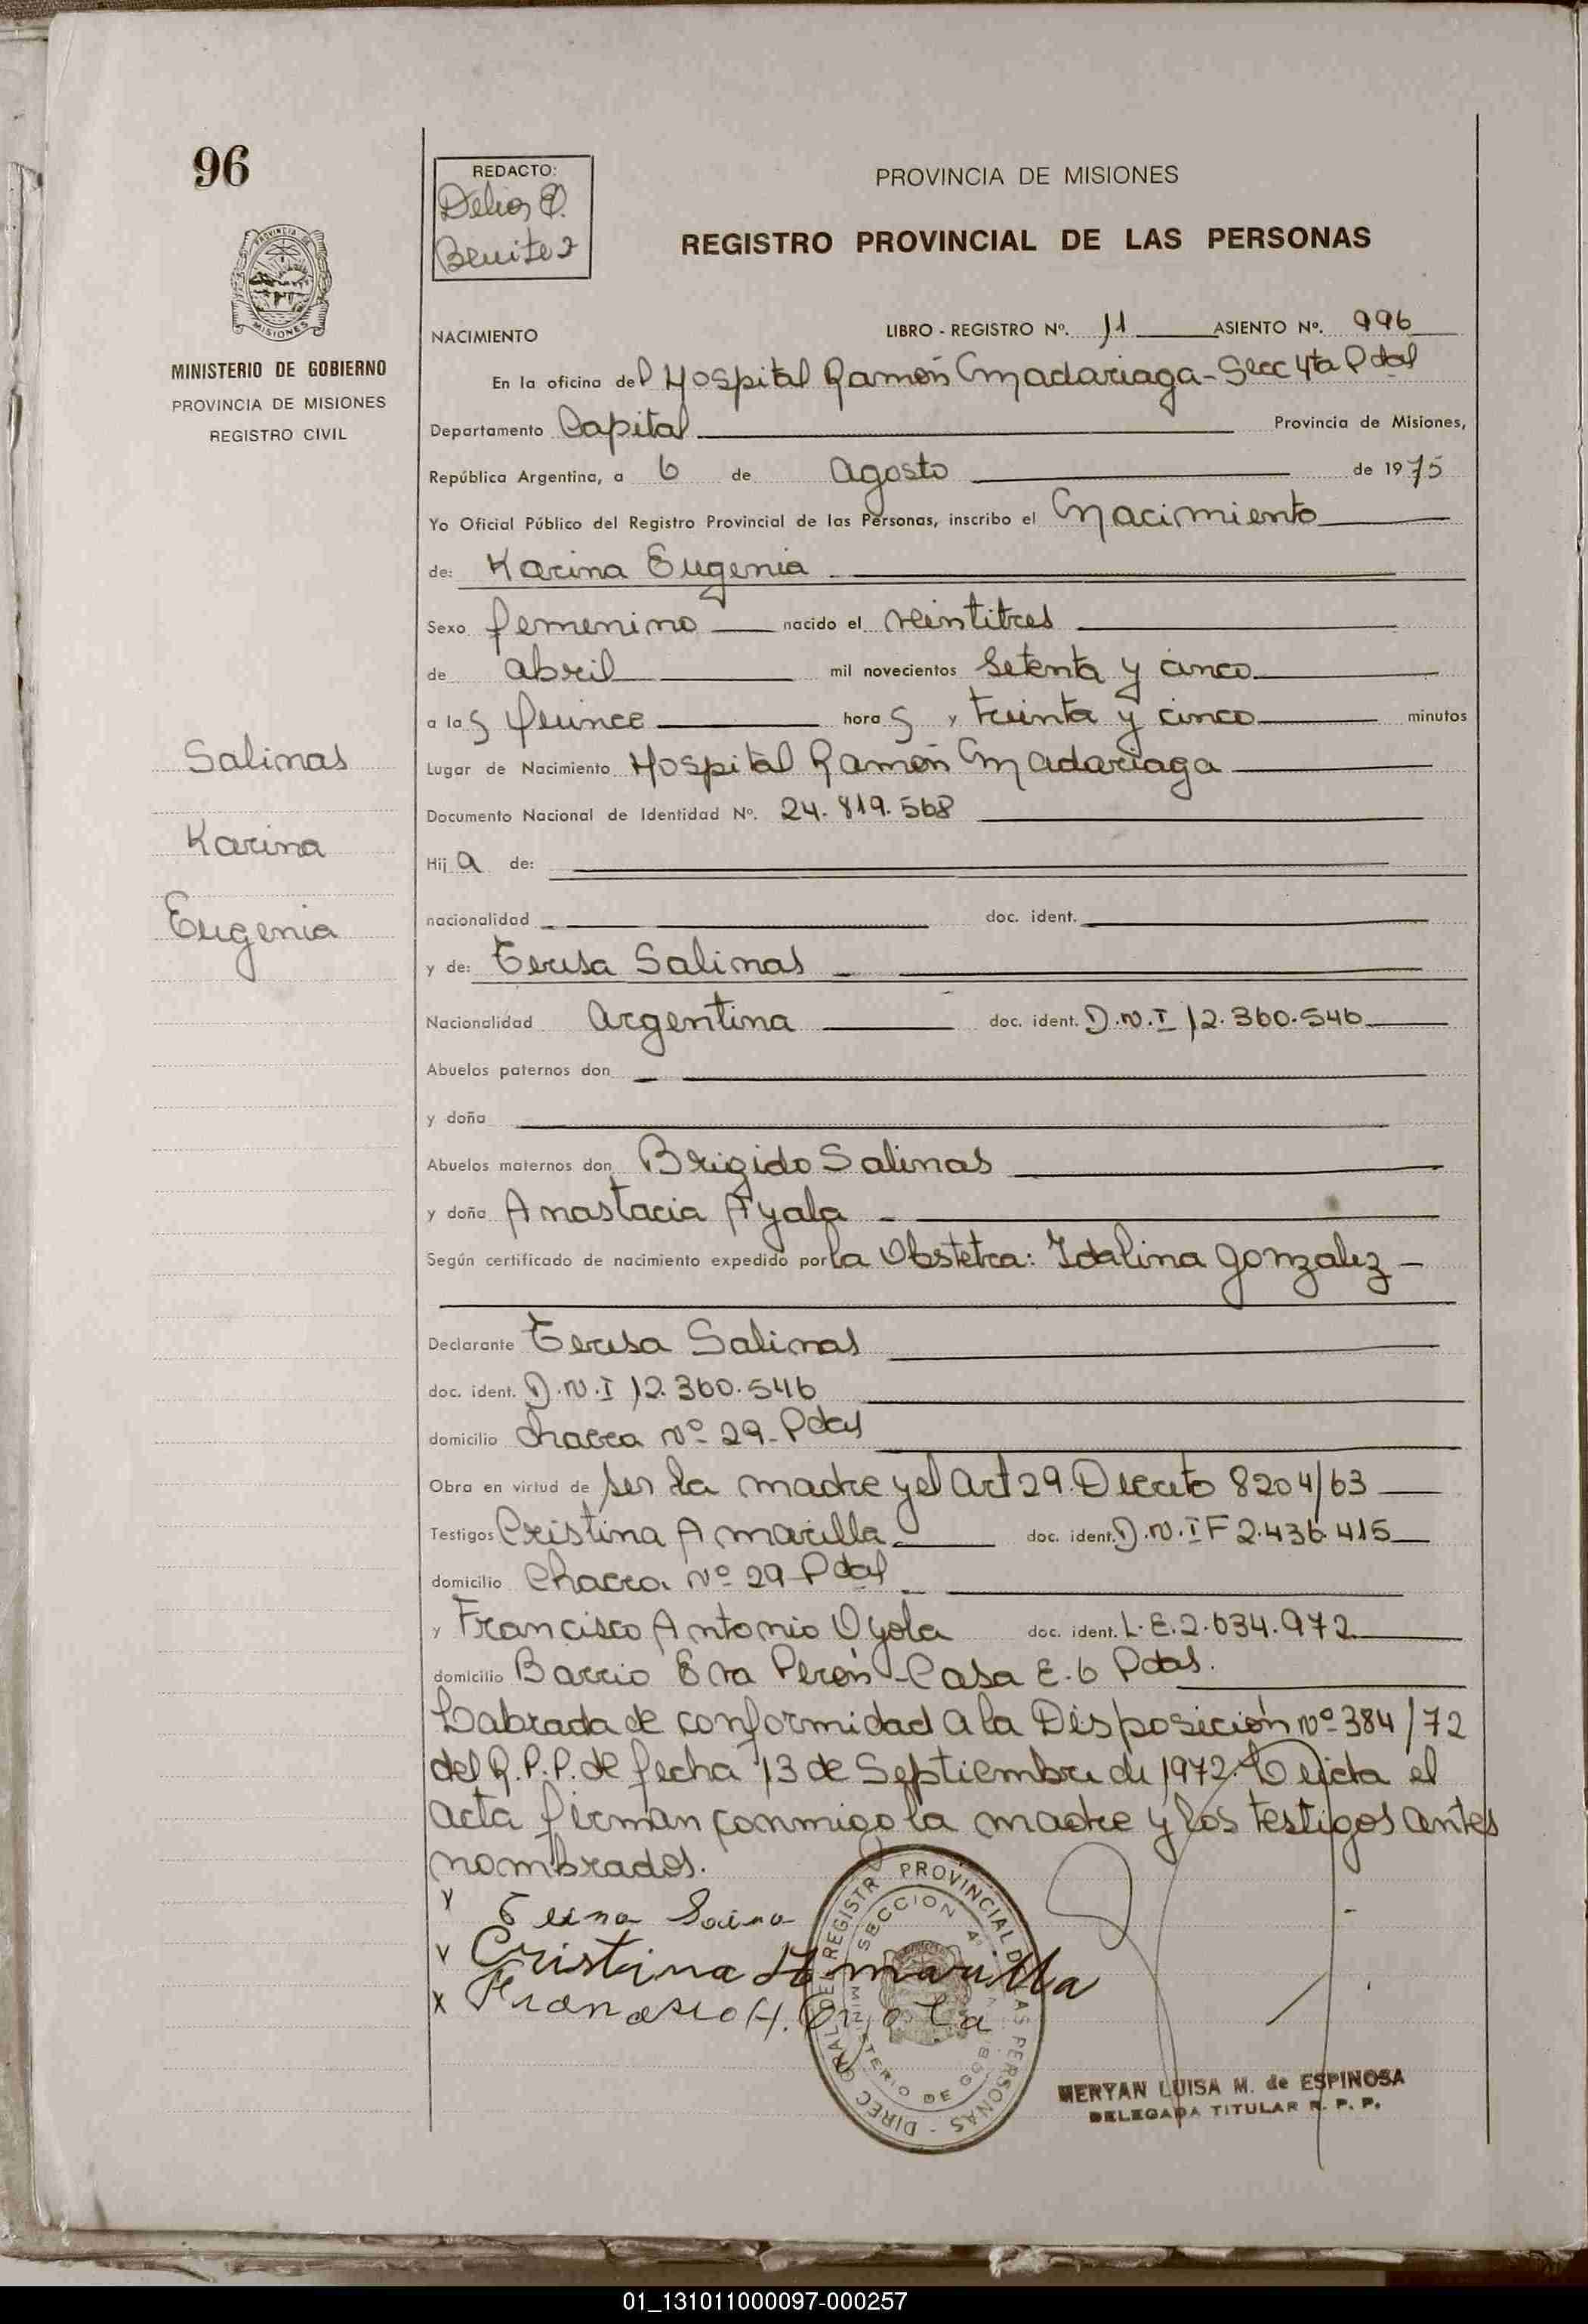 96
REDACTO:
Delia
Benitez
PROVINCIA DE MISIONES
REGISTRO PROVINCIAL DE LAS PERSONAS
PROVINCIA DE
MISIONES
MINISTERIO DE GOBIERNO
PROVINCIA DE MISIONES
REGISTRO CIVIL
NACIMIENTO LIBRO - REGISTRO Nº. 11 ASIENTO Nº. 996
En la oficina del Hospital Ramón Madariaga - Secc 4ta Pdas
Departamento Capital Provincia de Misiones,
República Argentina, a 6 de agosto de 1975
Yo Oficial Público del Registro Provincial de las Personas, inscribo el Nacimiento
de: Karina Eugenia
Sexo femenino nacido el veintitres
de abril mil novecientos setenta y cinco
a las quince horas y treinta y cinco minutos
Lugar de Nacimiento Hospital Ramón Madariaga
Documento Nacional de Identidad Nº. 24.819.568
Hija de:
nacionalidad doc. ident.
y de: Teresa Salinas
Nacionalidad Argentina doc. ident. D.N.I 12.360.546
Abuelos paternos don
y doña
Abuelos maternos don Brigido Salinas
y doña Anastacia Ayala
Según certificado de nacimiento expedido por la Obstetra: Idalina Gonzalez
Declarante Teresa Salinas
doc. ident. D.N.I 12.360.546
domicilio Chacra Nº 29 - Pdas
Obra en virtud de ser la madre y el Art 29. Decreto 8204/63
Testigos Cristina Amarilla doc. ident. D.N.I F 2.436.415
domicilio Chacra Nº 29 Pdas
y Francisco Antonio Oyola doc. ident. L.E. 2.634.972
domicilio Barrio Eva Perón - Casa E.6 Pdas.
Labrada de conformidad a la Disposición Nº 384/72
del R.P.P. de fecha 13 de Septiembre de 1972. Leída el
acta firman conmigo la madre y los testigos antes
nombrados.
Salinas
Karina
Eugenia
Cristina Amarilla
Francisco A. Oyola
DIREC GRAL DE REGISTR PROVINCIAL DE LAS PERSONAS
SECCION 4ª
MINISTERIO DE GOB
MERYAN LUISA M. de ESPINOSA
DELEGADA TITULAR R. P. P.
01_131011000097-000257